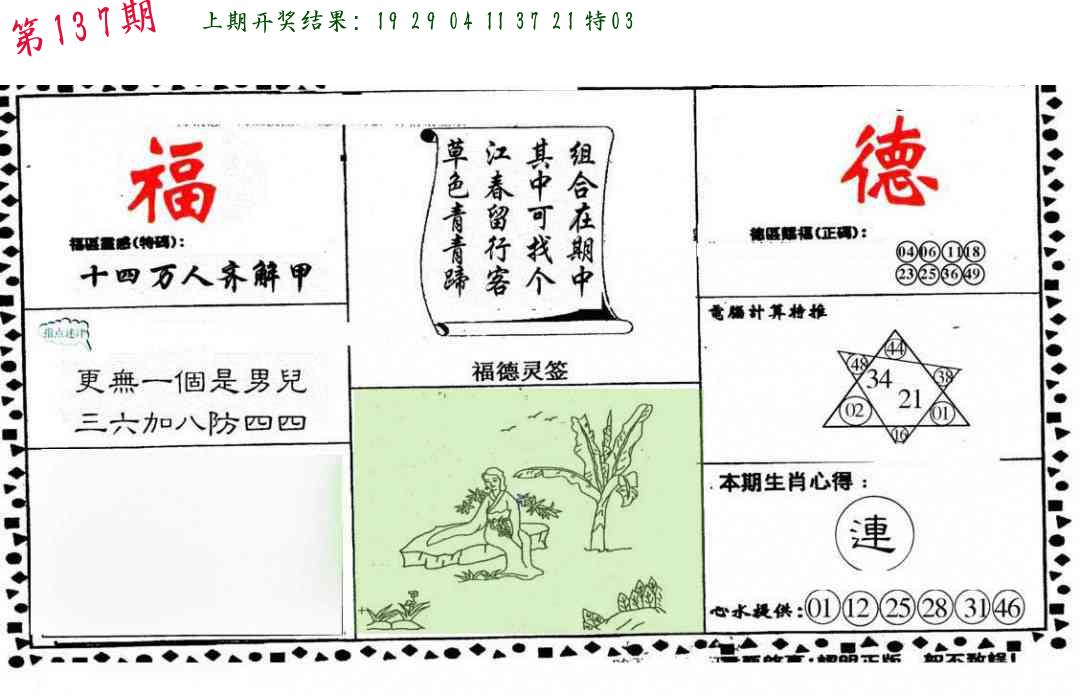 第137期
上期开奖结果：19 29 04 11 37 21特03
福
福區靈感(特碼)：
十四万人齐解甲
指点迷津
更無一個是男兒
三六加八防四四
组合在期中
其中可找个
江春留行客
草色青青蹄
福德灵签
德
德區賜福(正碼)：
04 06 11 18
23 25 36 49
電腦計算特推
44
48 34 38
21
02 01
16
本期生肖心得：
連
心水提供：01 12 25 28 31 46